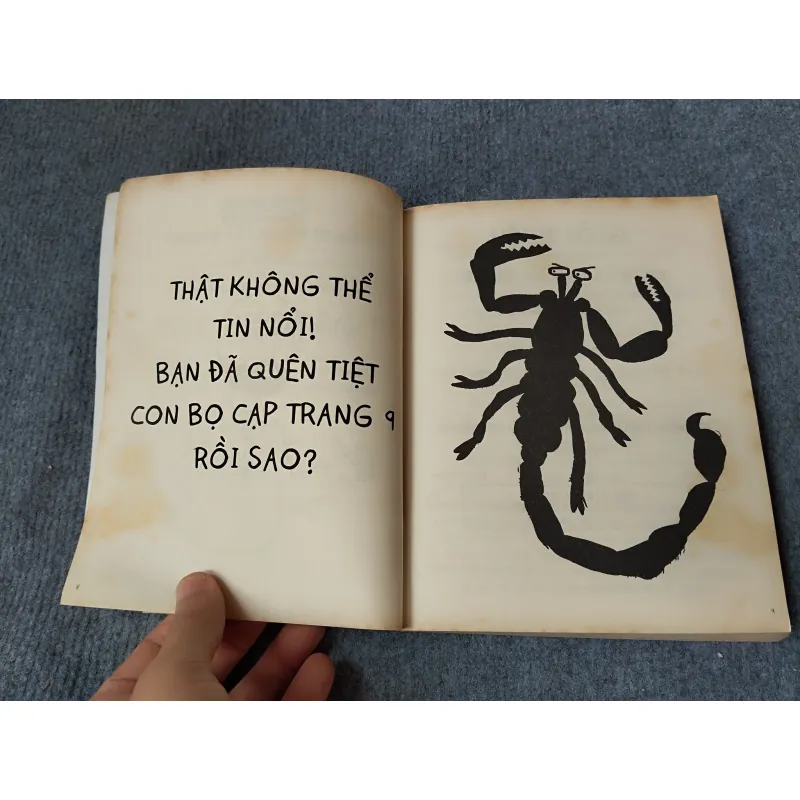 THẬT KHÔNG THỂ
TIN NỔI!
BẠN ĐÃ QUÊN TIỆT
CON BỌ CẠP TRANG 9
RỒI SAO?
9